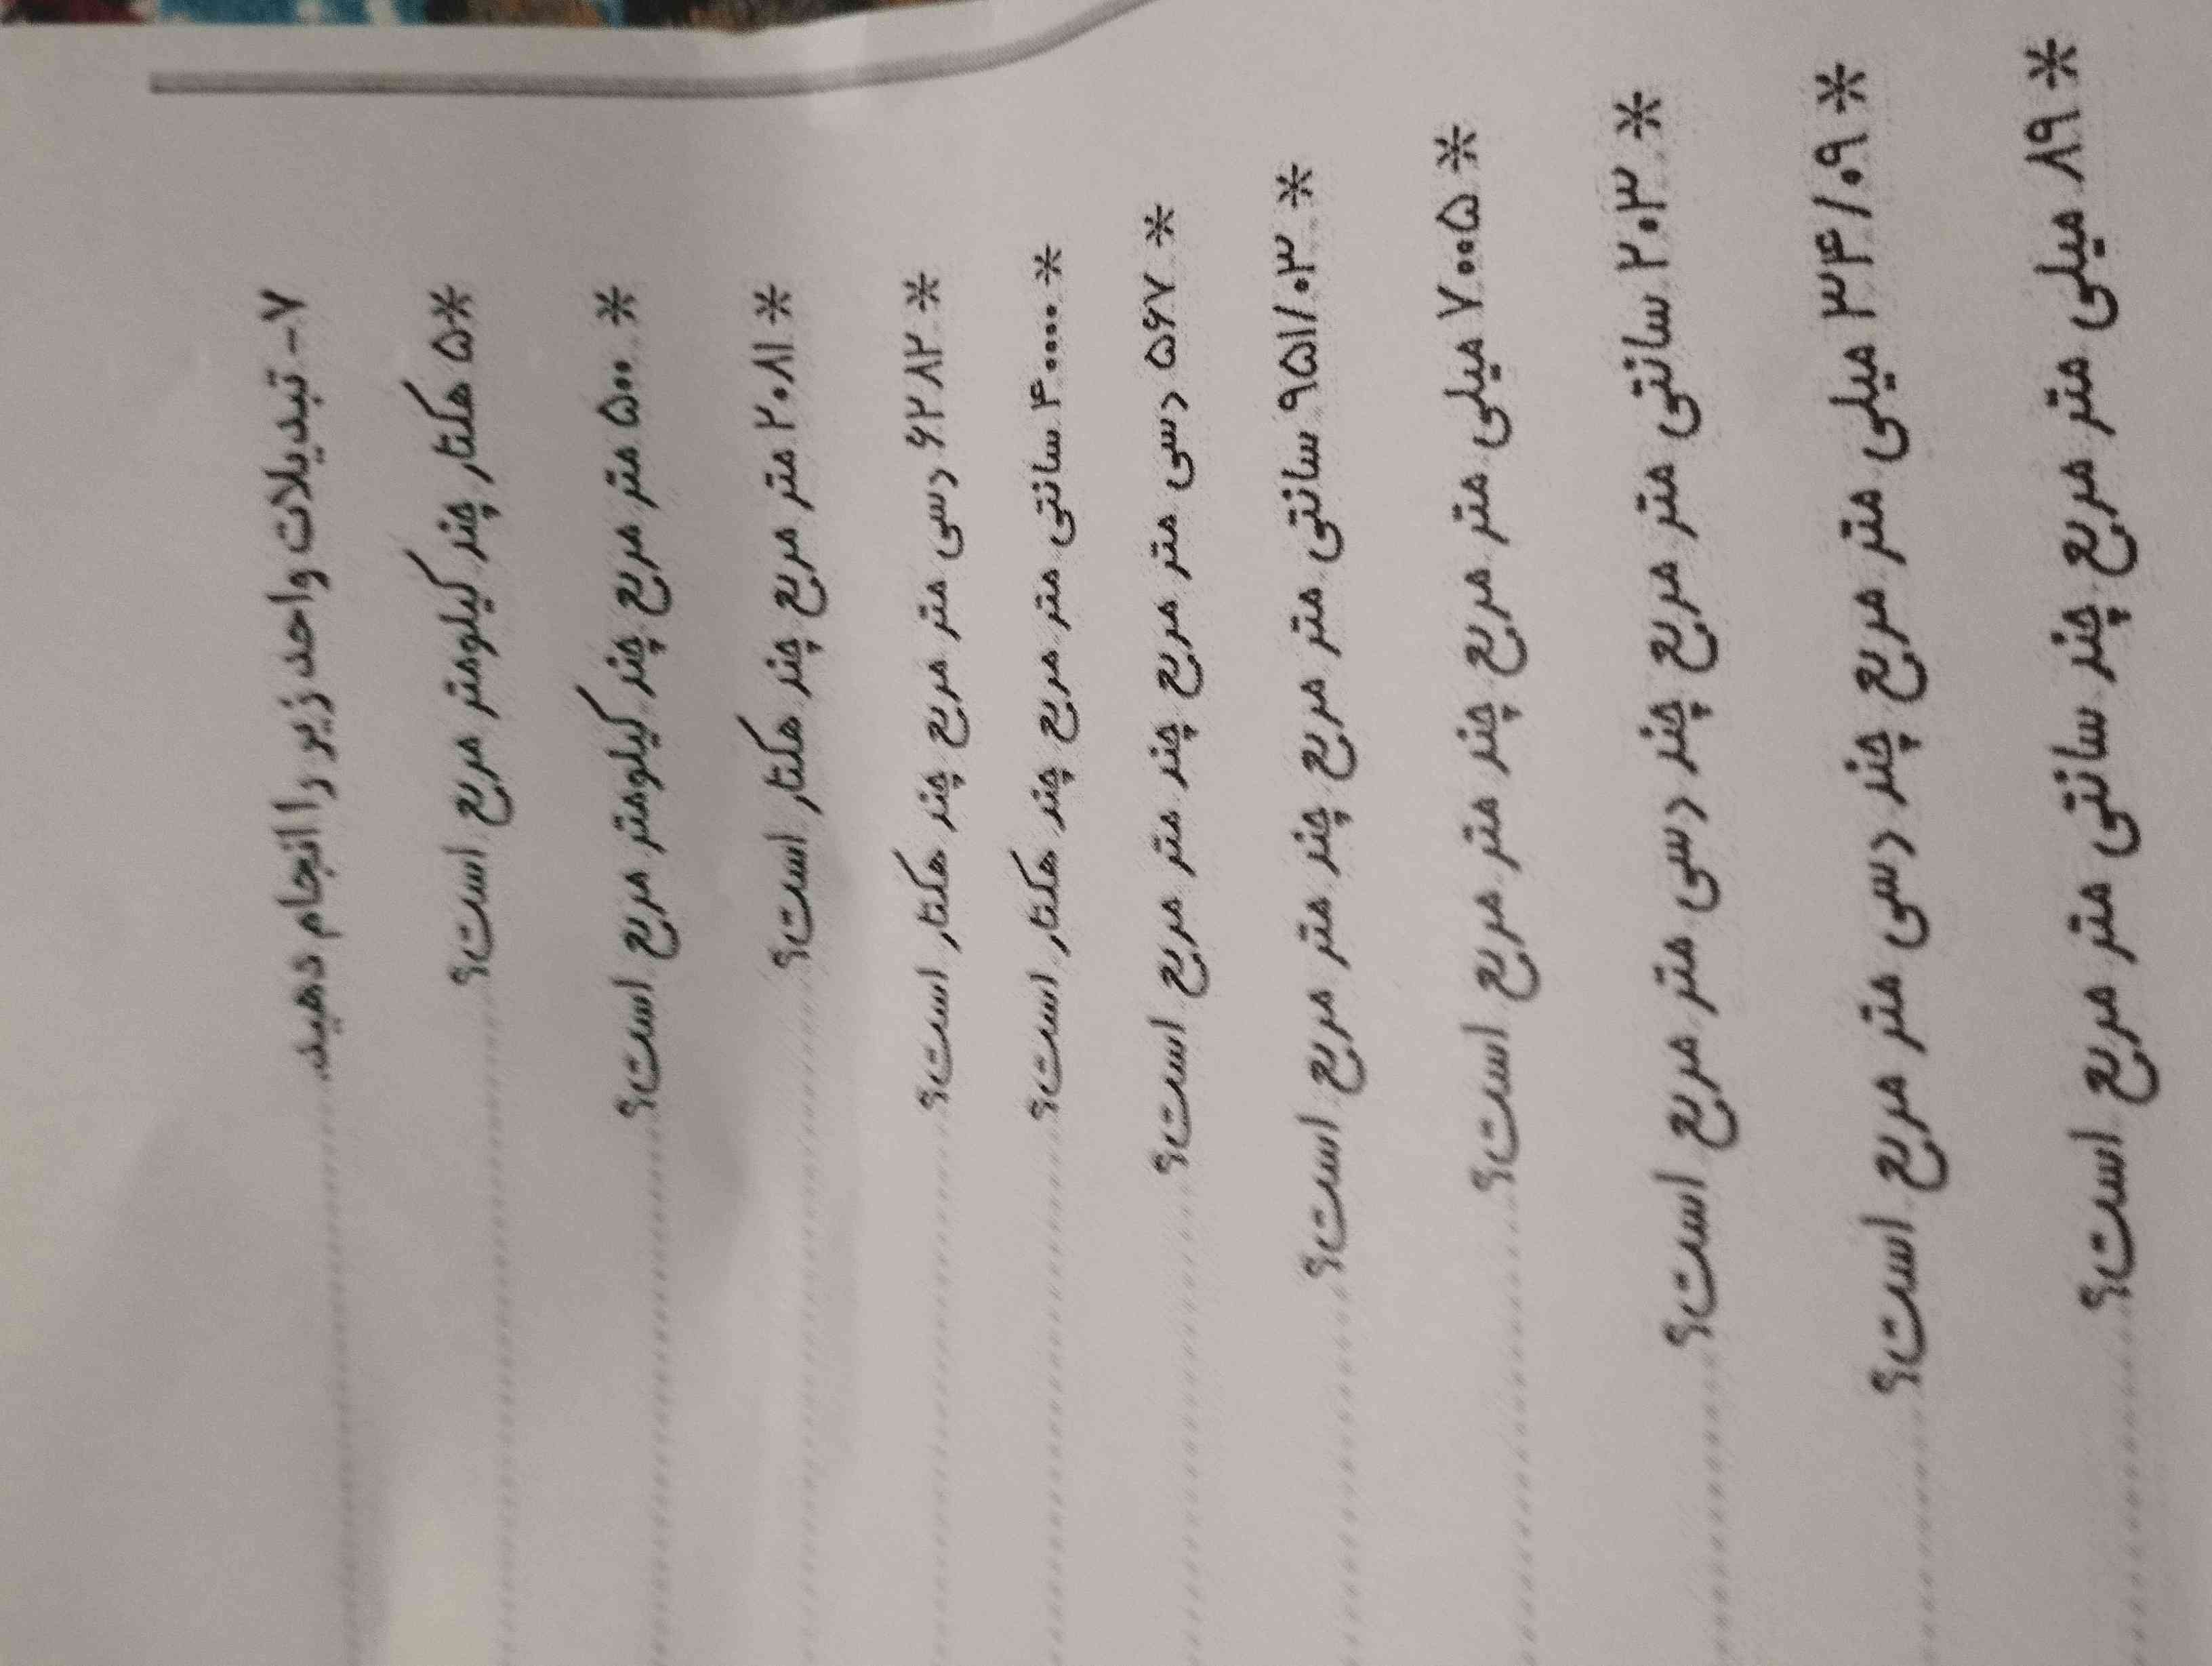 ۷- تبدیلات واحد زیر را انجام دهید.
*۵ هکتار چند کیلومتر مربع است؟
* ۵۰۰ متر مربع چند کیلومتر مربع است؟
* ۲۰۸۱ متر مربع چند هکتار است؟
* ۶۲۸۲ دسی متر مربع چند هکتار است؟
* ۴۰۰۰۰ سانتی متر مربع چند هکتار است؟
* ۵۶۷ دسی متر مربع چند متر مربع است؟
* ۹۵۱/۰۳ سانتی متر مربع چند متر مربع است؟
* ۷۰۰۵ میلی متر مربع چند متر مربع است؟
* ۲۰۳ سانتی متر مربع چند دسی متر مربع است؟
* ۳۴/۰۹ میلی متر مربع چند دسی متر مربع است؟
* ۸۹ میلی متر مربع چند سانتی متر مربع است؟